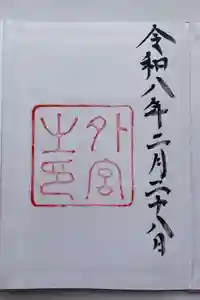 令和八年二月二十八日
外宮
之印